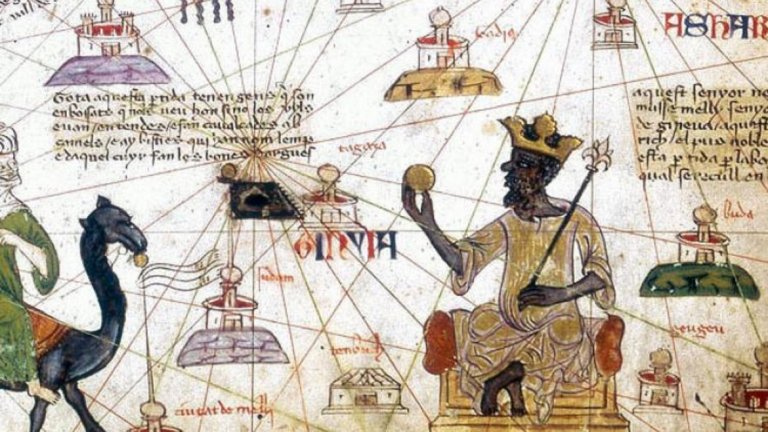 ASHAR
Tota aquesta ptida tenen gens q son
enbossats q nols veu hom sino los uyls
euan / en tendes / efan caualcades ab
camels / e ay bisties qui han nom lemp
e daquel cuyr fan les bones dargues
aquest senyor ne
musse melly senyo
de gineua / aquest
rich / el pus noble
esta ptida p labo
qual se recull en
tagaza
GINYIA
buda
sudam
geugeu
tenbuch
ciutat de melly